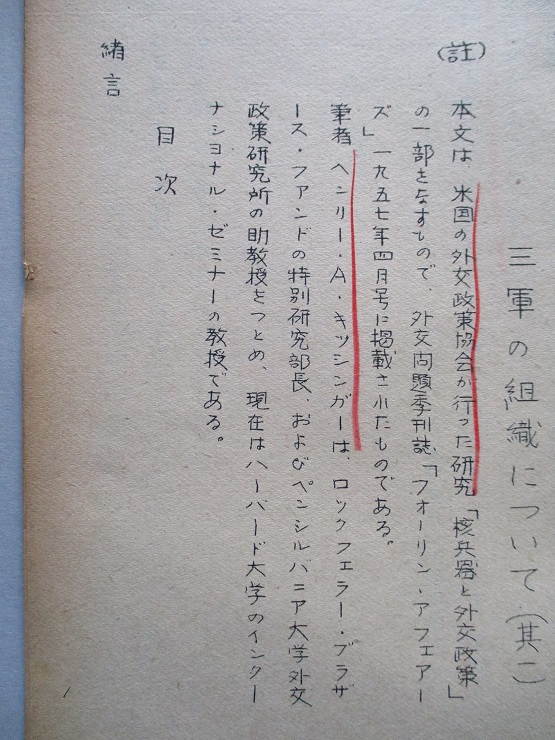 三軍の組織について(其二)
(註)
本文は、米国の外交政策協会が行った研究「核兵器と外交政策」
の一部をなすもので、外交問題季刊誌「フォーリン・アフェアー
ズ」一九五七年四月号に掲載されたものである。
筆者 ヘンリー・A・キッシンガーは、ロックフェラー・ブラザ
ース・ファンドの特別研究部長、およびペンシルバニア大学外交
政策研究所の助教授をつとめ、現在はハーバード大学のインター
ナショナル・ゼミナーの教授である。
目次
緒言